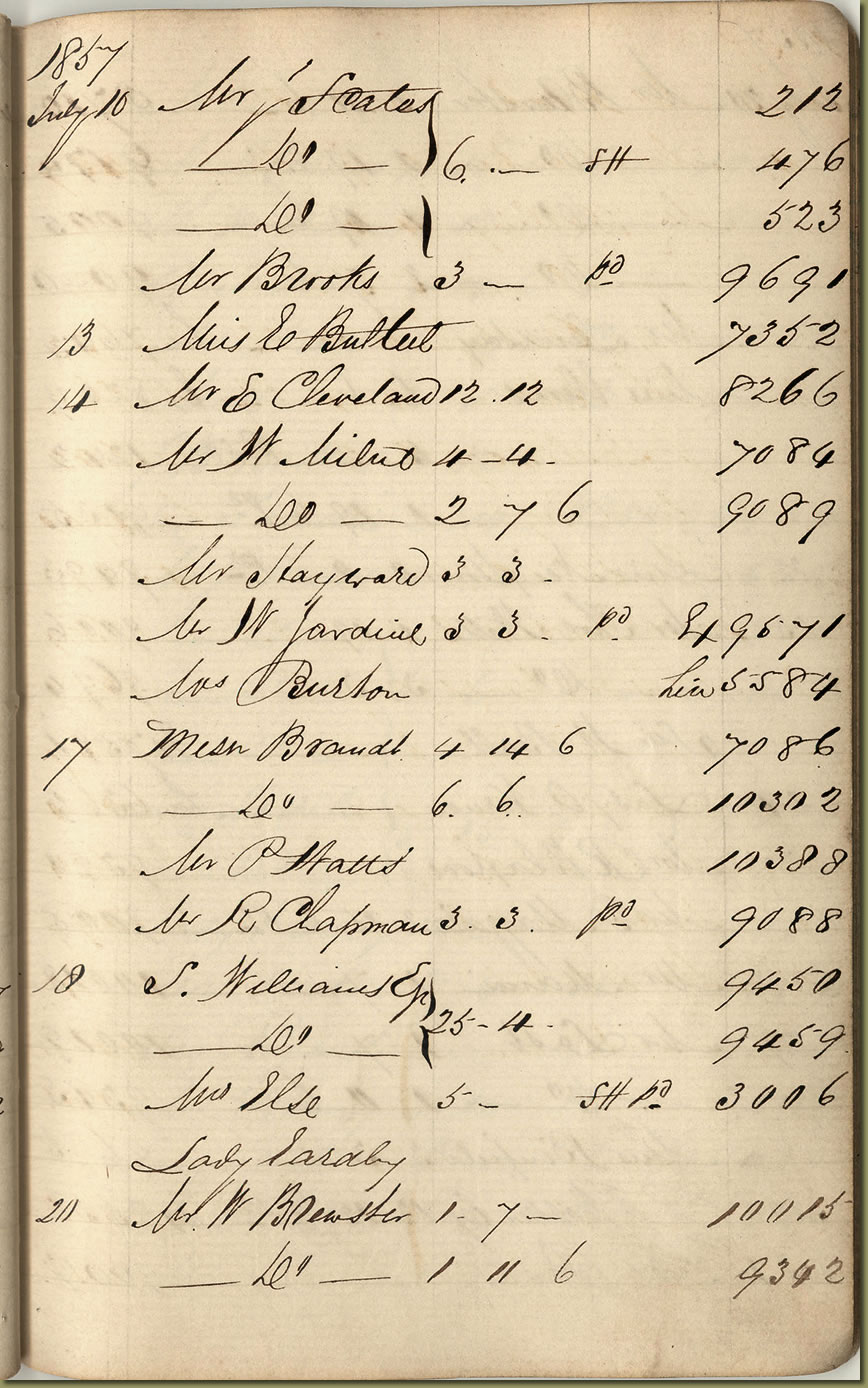 1857
July 10 Mr J Scates 212
— Do — 6. . — SH 476
— Do — 523
Mr Brooks 3 — pd 9691
13 Miss E Bulteel 7352
14 Mr E Cleveland 12 . 12 8266
Mr W Milne 4 - 4 - 7084
— Do — 2 7 6 9089
Mr Hayward 3 3 -
Mr W Jardine 3 3 - pd 9571
Mrs Burton 5584
17 Messrs Brandt 4 14 6 7086
— Do — 6. 6. 10302
Mr P Watts 10388
Mr R Chapman 3. 3. pd 9088
18 S. Williams Esq 9450
— Do — 25 - 4 - 9459
Mrs Else 5 - SH pd 3006
Lady Eardley
20 Mr. W Brewster 1 - 7 — 10015
— Do — 1 11 6 9342